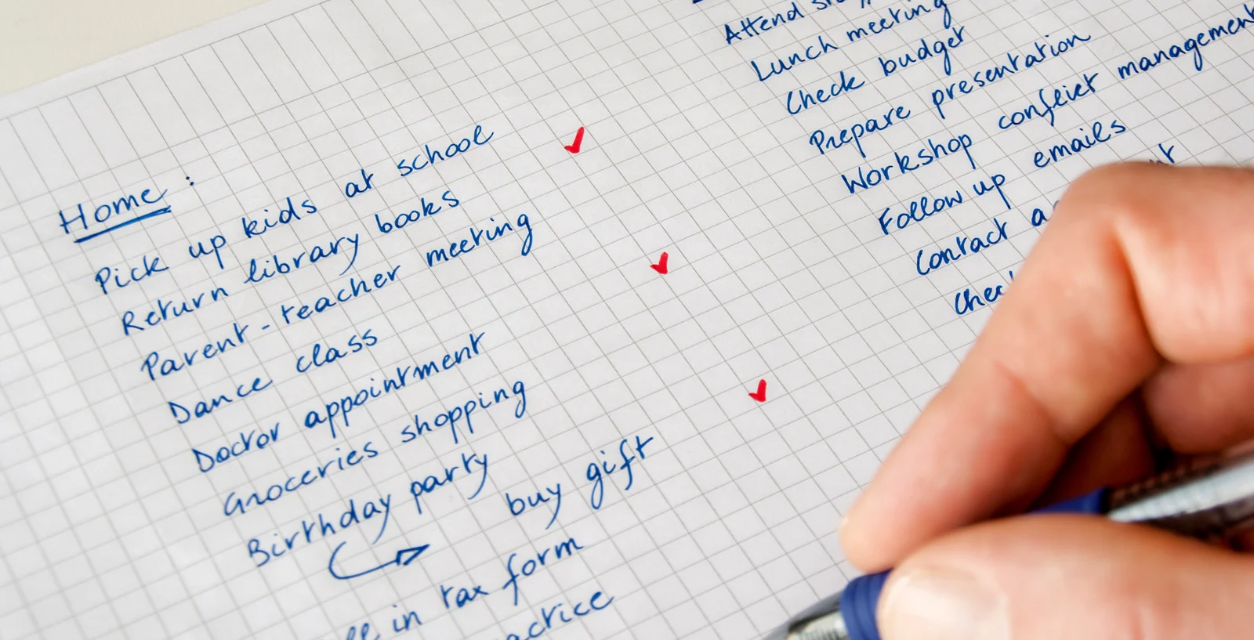 Home :
Pick up kids at school
Return library books
Parent-teacher meeting
Dance class
Doctor appointment
Groceries shopping
Birthday party
buy gift
in tax form
Attend
Lunch meeting
Check budget
Prepare presentation
Workshop conflict management
Follow up emails
Contact